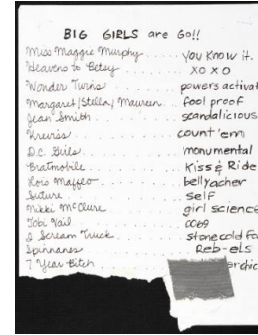 BIG GIRLS are Go!!
Miss Maggie Murphy . . . . . You Know it.
Heavens to Betsy . . . . . . . XOXO
Wonder Twins . . . . . . . . powers activat
Margaret/Stella/Maureen . . fool proof
Jean Smith . . . . . . . . . . scandalicious
count 'em
D.C. Girls . . . . . . . . . . monumental
Bratmobile . . . . . . . . . . Kiss & Ride
Lois Maffeo . . . . . . . . . bellyacher
Suture . . . . . . . . . . . . self
Nikki McClure . . . . . . . . girl science
Tobi Vail . . . . . . . . . . . 0069
I Scream Truck . . . . . . . stone cold fo
Spinnanes . . . . . . . . . . Reb-els
7 Year Bitch